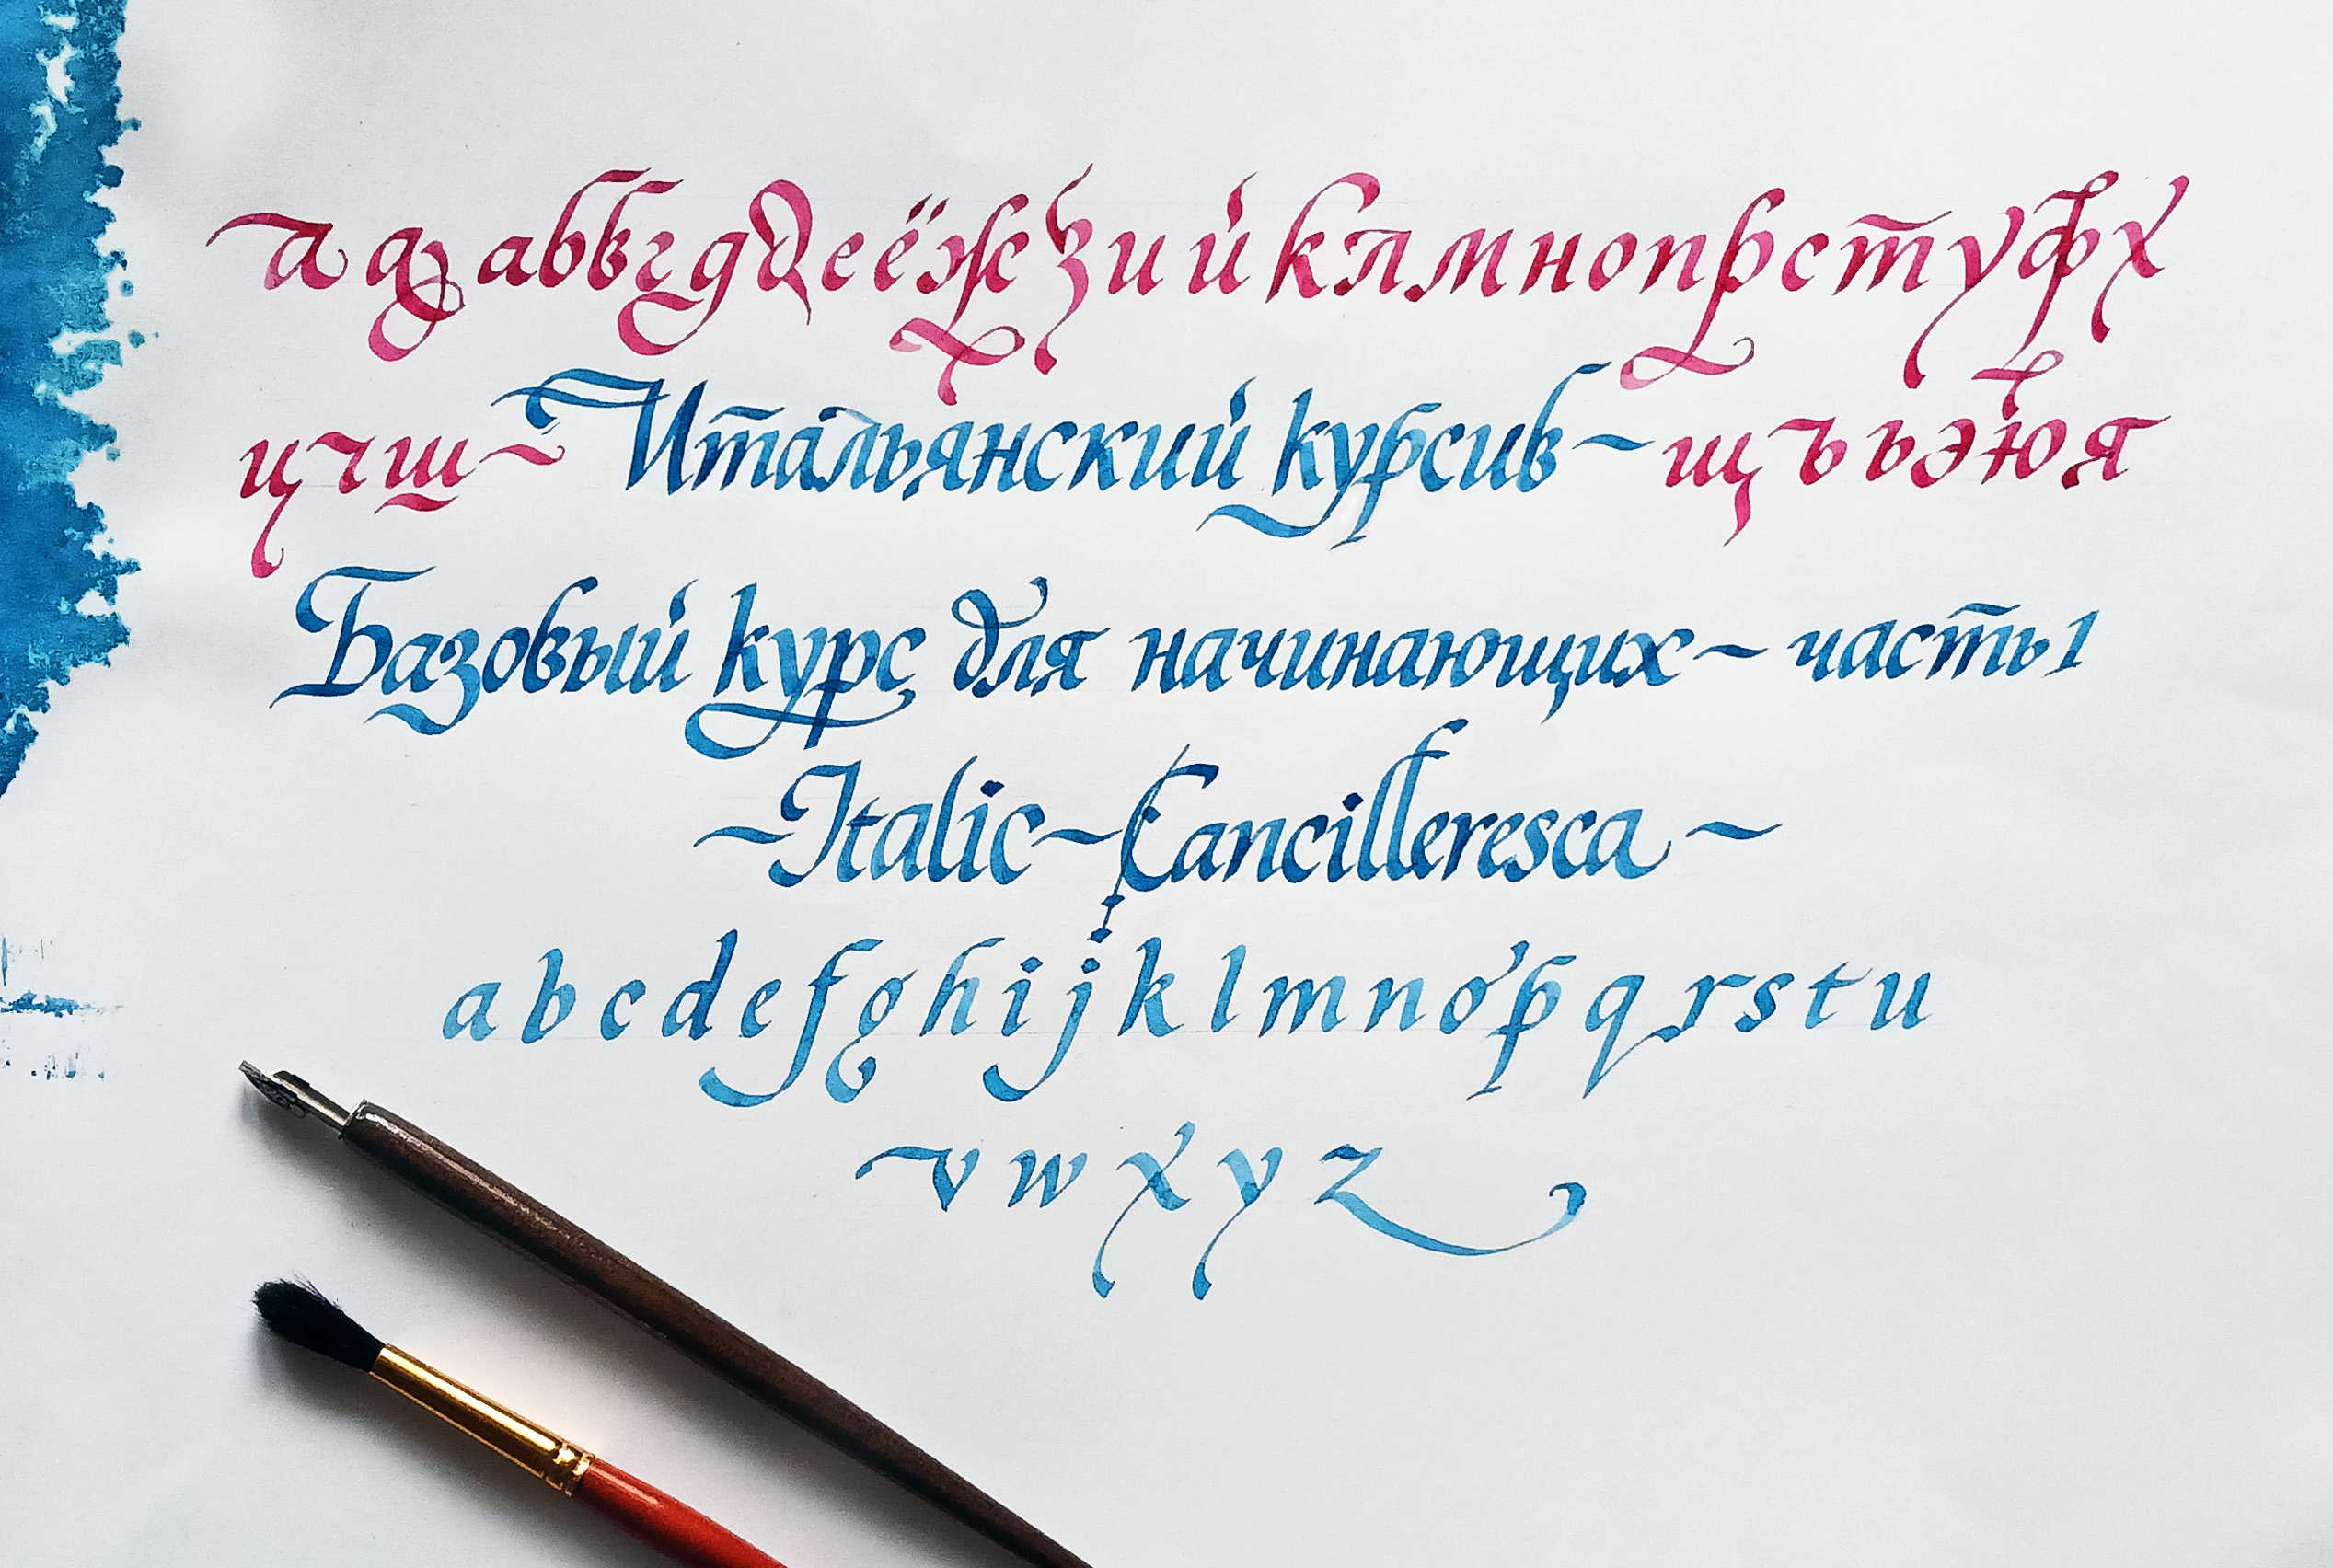 а а а б в г д д е ё ж з и й к л м н о п р с т у ф х
ц ч ш ~ Итальянский курсив ~ щ ъ ь э ю я
Базовый курс для начинающих ~ часть 1
~ Italic ~ Cancilleresca ~
a b c d e f g h i j k l m n o p q r s t u
v w x y z